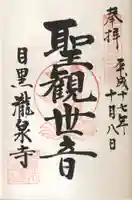 奉拝
平成十七年
十月八日
聖観世音
目黒瀧泉寺